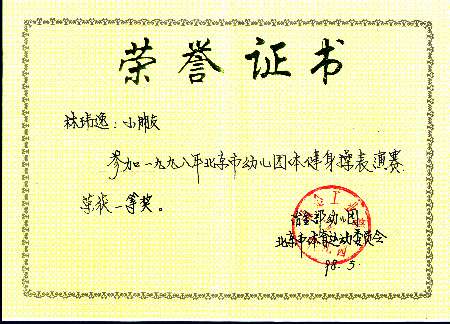 荣誉证书
林玮逸：小朋友
参加一九九八年北京市幼儿园体健身操表演赛
荣获一等奖。
冶金部幼儿园
北京市体育运动委员会
98.5.